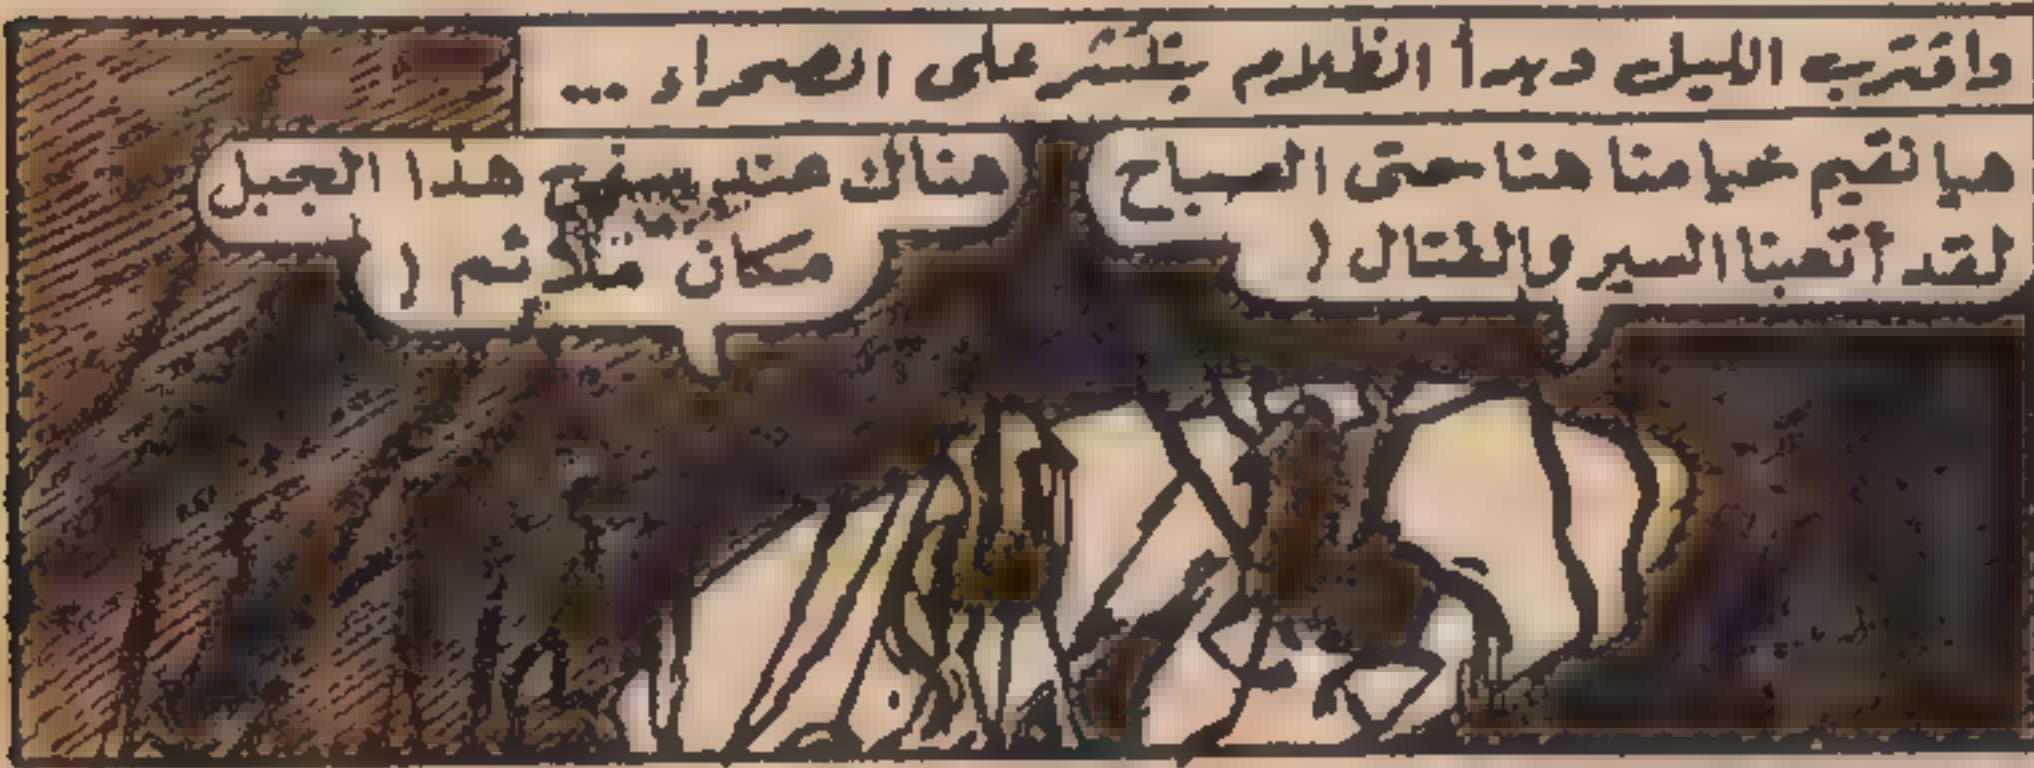 واقترب الليل وبدأ الظلام ينتشر على الصحراء ...
هيا نقيم خيامنا هنا حتى الصباح
لقد أتعبنا السير والقتال !
هناك عند سفح هذا الجبل
مكان ملائم !